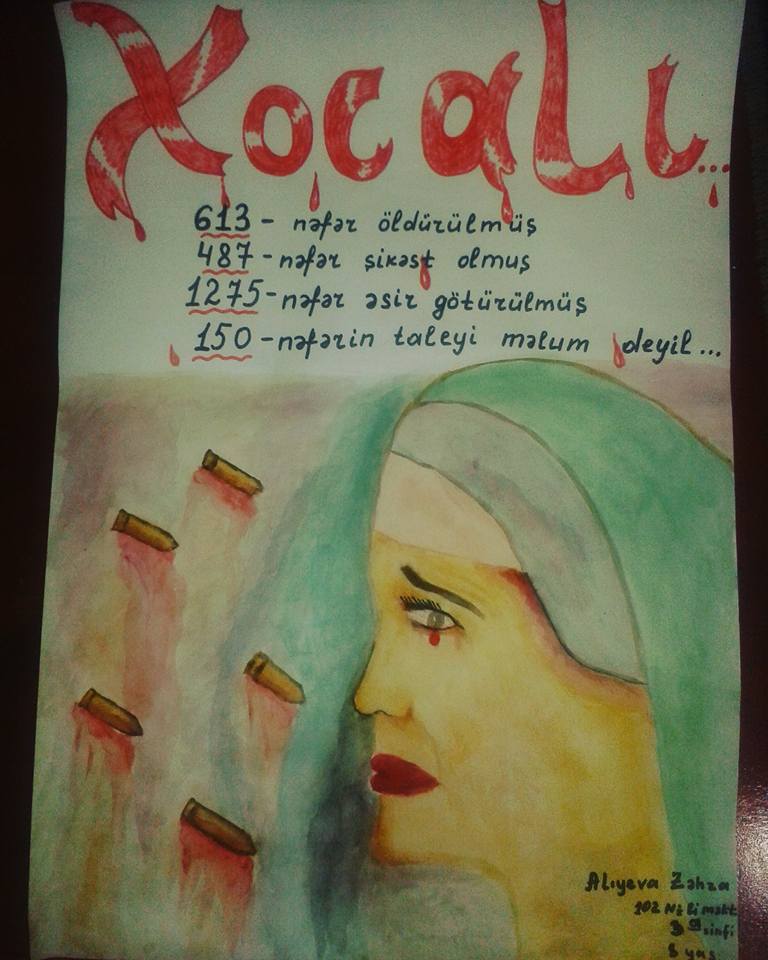 Xocalı...
613 - nəfər öldürülmüş
487 - nəfər şikəst olmuş
1275 - nəfər əsir götürülmüş
150 - nəfərin taleyi məlum deyil...
Alıyeva Zəhra
102 №li məkt
3 sinfi
8 yaş